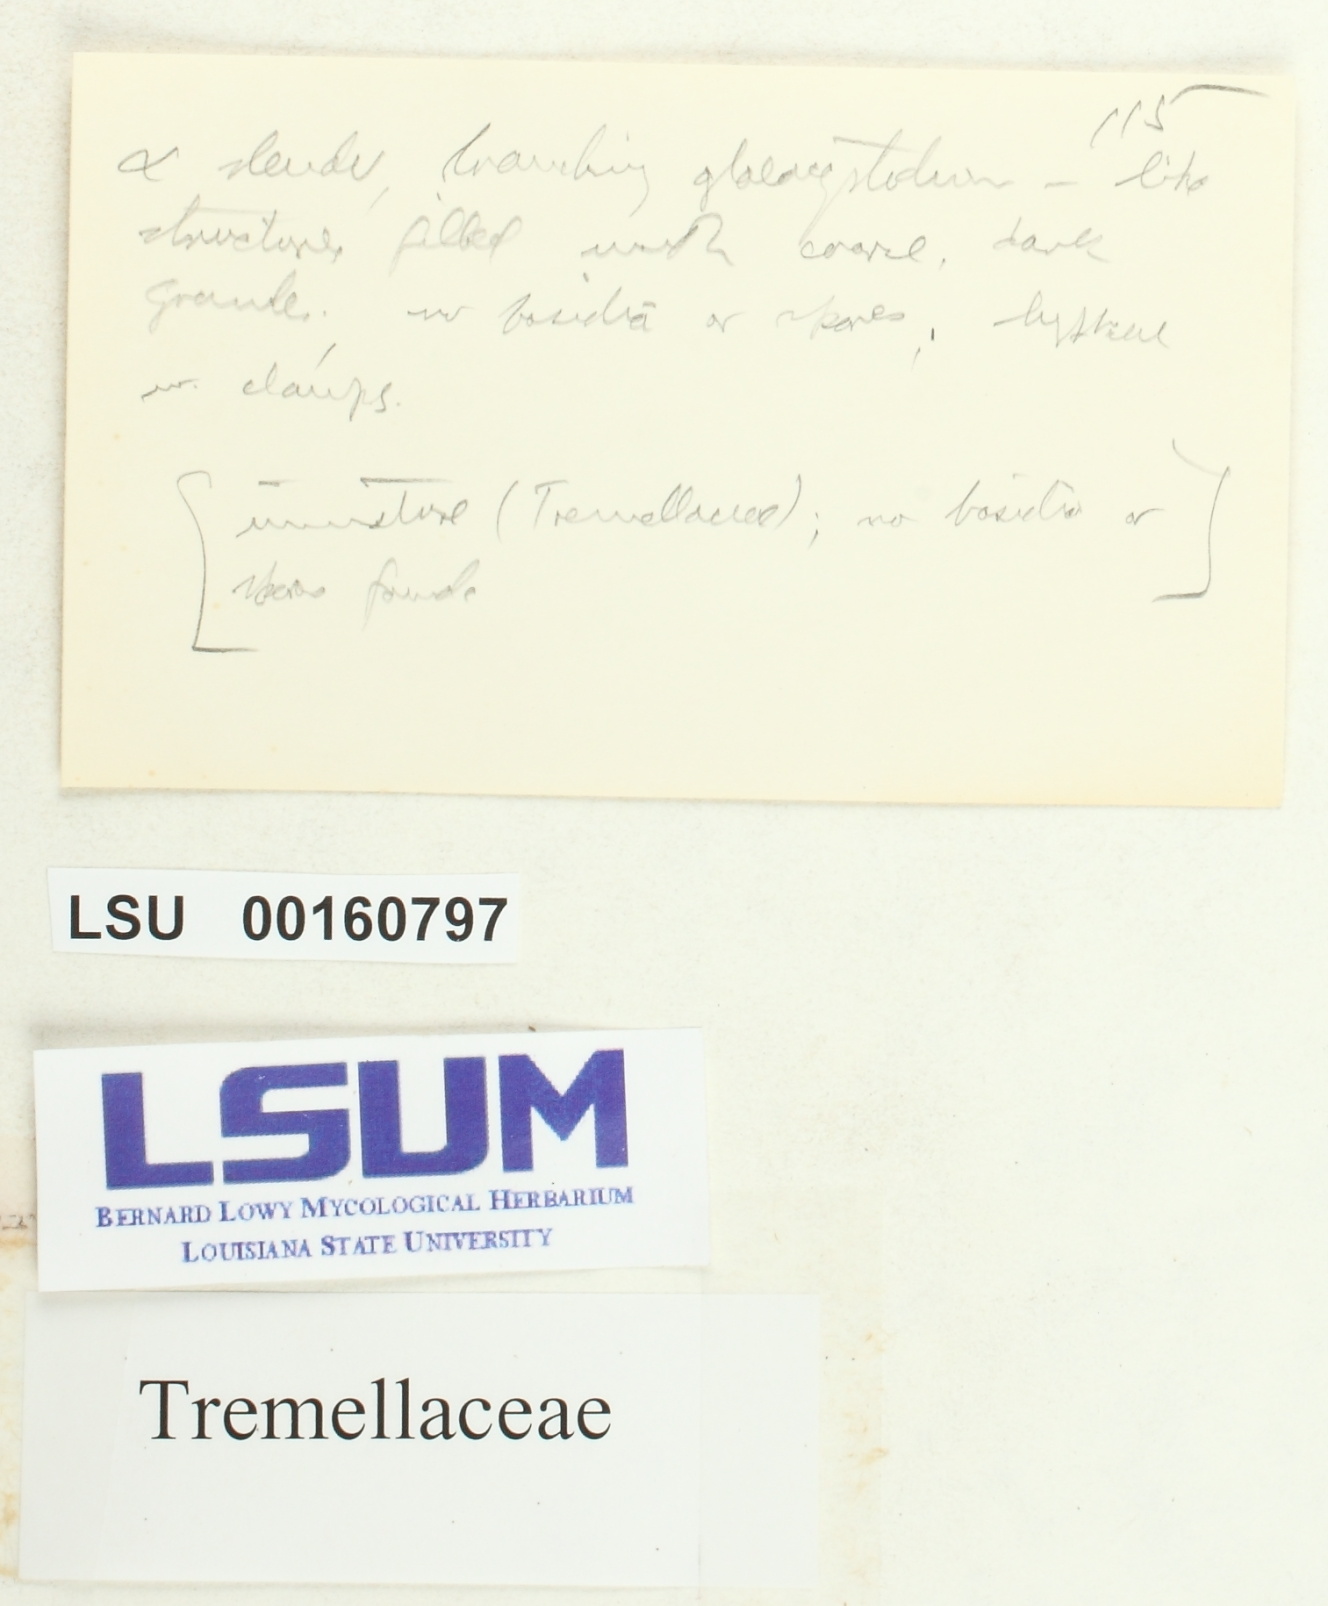 115
& slender, branching gloeocystidium – like
structures filled with coarse, dark
granules. no basidia or spores, hyphae
w. clamps.
immature (Tremellaceae); no basidia or
spores found
LSU 00160797
LSUM
BERNARD LOWY MYCOLOGICAL HERBARIUM
LOUISIANA STATE UNIVERSITY
Tremellaceae